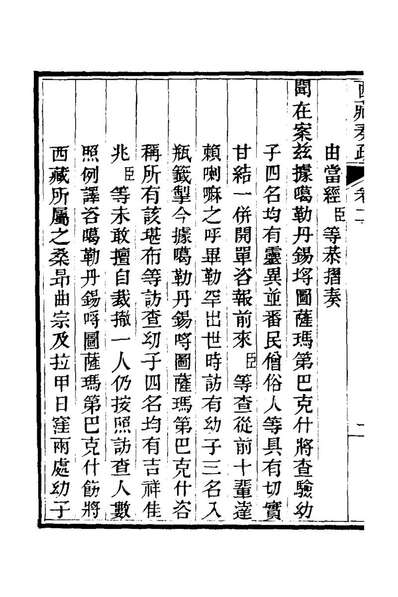 由當經臣等恭摺奏
聞在案茲據噶勒丹錫埒圖薩瑪第巴克什將查驗幼
子四名均有靈異並番民僧俗人等具有切實
甘結一併開單咨報前來臣等查從前十輩達
賴喇嘛之呼畢勒罕出世時訪有幼子三名入
瓶籤掣今據噶勒丹錫埒圖薩瑪第巴克什咨
稱所有該堪布等訪查幼子四名均有吉祥佳
兆臣等未敢擅自裁撤一人仍按照訪查人數
照例譯咨噶勒丹錫埒圖薩瑪第巴克什飭將
西藏所屬之桑昂曲宗及拉甲日窪兩處幼子